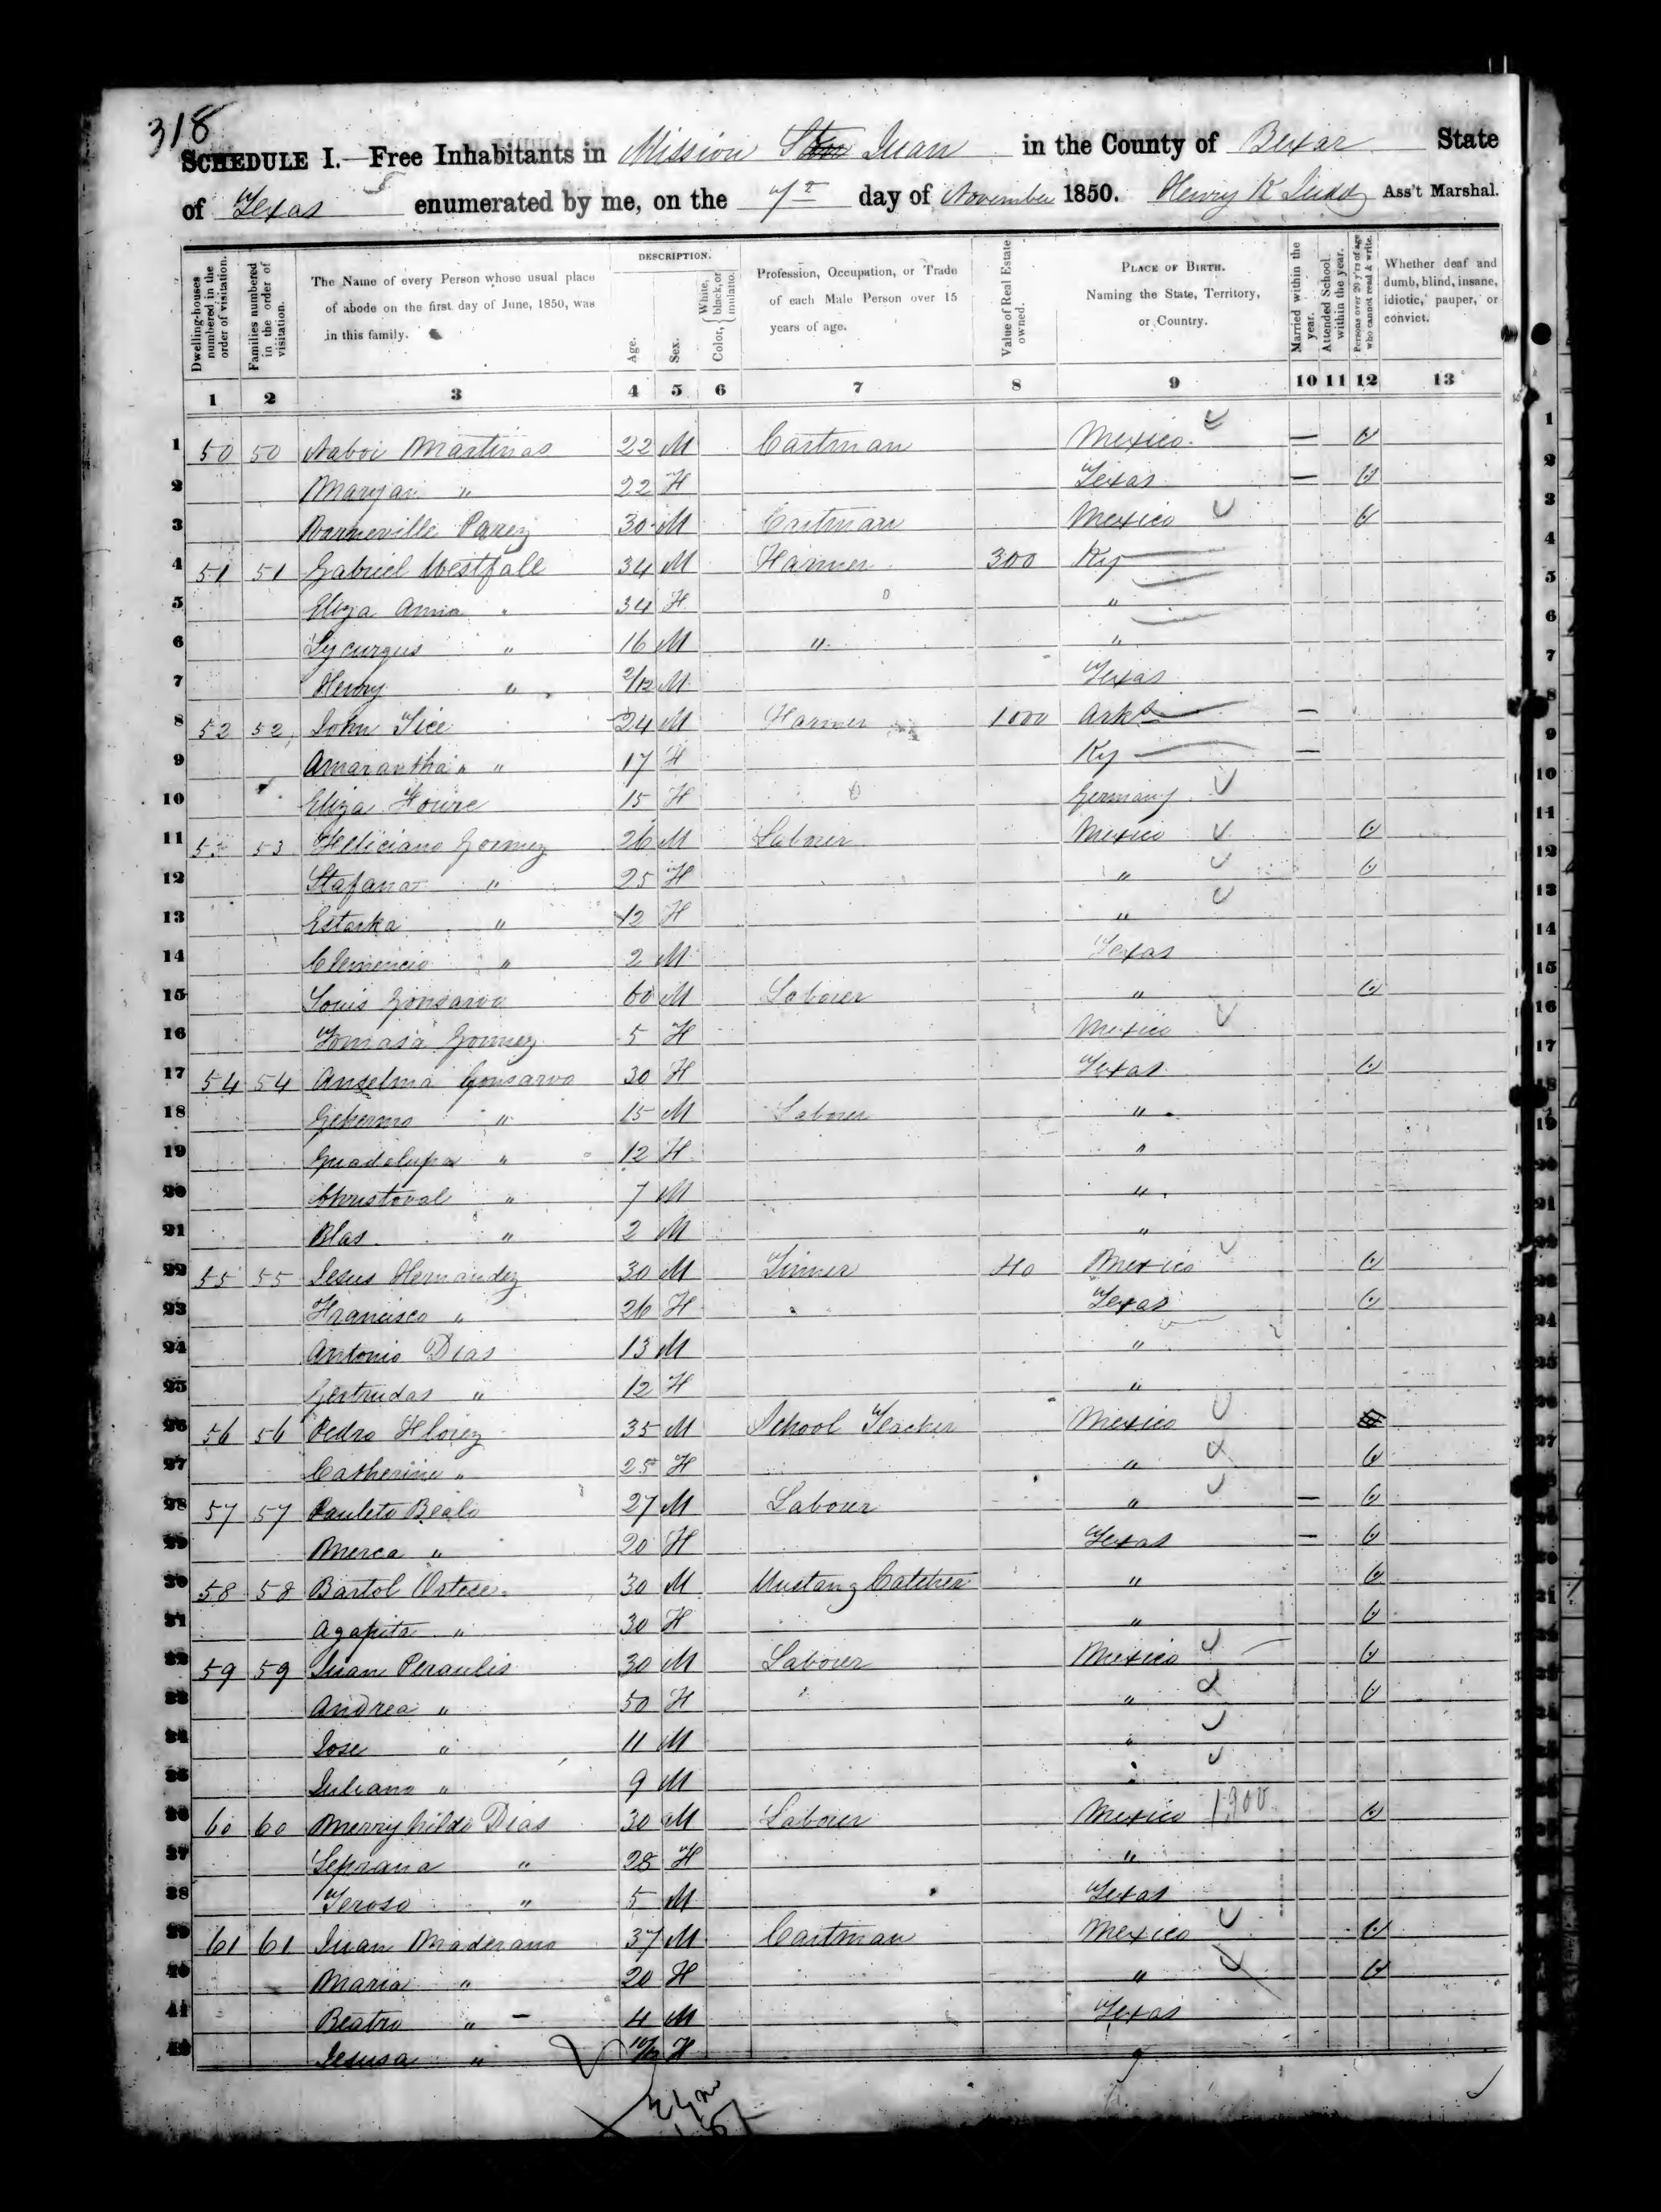 318
SCHEDULE I.—Free Inhabitants in Mission San Juan in the County of Bexar State
of Texas enumerated by me, on the 7th day of November 1850. Henry K Judd Ass't Marshal.
Dwelling-houses numbered in the order of visitation.
Families numbered in the order of visitation.
The Name of every Person whose usual place of abode on the first day of June, 1850, was in this family.
DESCRIPTION.
Age.
Sex.
Color, { White, black, or mulatto.
Profession, Occupation, or Trade of each Male Person over 15 years of age.
Value of Real Estate owned.
PLACE OF BIRTH. Naming the State, Territory, or Country.
Married within the year.
Attended School within the year.
Persons over 20 y'rs of age who cannot read & write.
Whether deaf and dumb, blind, insane, idiotic, pauper, or convict.
1 2 3 4 5 6 7 8 9 10 11 12 13
1 50 50 Martinas 22 M Cartman Mexico —
2 Maryan " 22 F Texas —
3 Barneville Parez 30 M Cartman Mexico
4 51 51 Gabriel Westfall 34 M Farmer 300 Ky
5 Eliza Anna " 34 F "
6 Lycurgus " 16 M " "
7 Henry " 2/12 M Texas
8 52 52 John Tice 24 M Farmer 1000 Arks —
9 Amarantha " 17 F Ky —
10 Eliza 15 F Germany
11 53 53 Feliciano Gomez 26 M Labouer Mexico
12 Stafana " 25 F "
13 Estarka " 12 F "
14 Clemencio " 2 M Texas
15 Louis Gonsarvo 60 M Labouer "
16 Tomasa Gomez 5 F Mexico
17 54 54 Anselma Gonsarvo 30 F Texas
18 " 15 M Labouer "
19 Guadalupa " 12 F "
20 Christoval " 7 M "
21 Blas " 2 M "
22 55 55 Jesus Hernandez 30 M Tinner 40 Mexico
23 Francisco " 26 F Texas
24 Antonio Dias 13 M "
25 Gertrudas " 12 F "
26 56 56 Pedro Florez 35 M School Teacher Mexico
27 Catherine " 25 F "
28 57 57 Pauleto Bealo 27 M Labouer " —
29 Merca " 20 F Texas —
30 58 58 Bartol Ortese 30 M Mustang Catcher "
31 Agapita " 30 F "
32 59 59 Juan Peraulis 30 M Labouer Mexico
33 Andrea " 50 F "
34 Jose " 11 M "
35 Juliano " 9 M "
36 60 60 Merryhildo Dias 30 M Labouer Mexico 1,900
37 Seprana " 28 F "
38 Teroso " 5 M Texas
39 61 61 Juan Maderano 37 M Cartman Mexico
40 Maria " 20 F "
41 Beatro " 4 M Texas
42 Jesusa " 10/12 F "